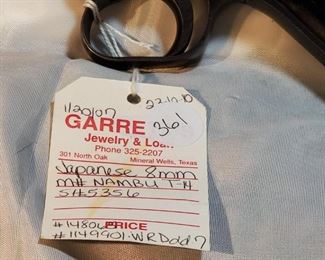 1/20/07
22-17-10
GARRE 361
Jewelry & Loan
Phone 325-2207
301 North Oak Mineral Wells, Texas
Japanese 8mm
m# NAMBU T-14
S# 5356
PRICE
#1149901-WR